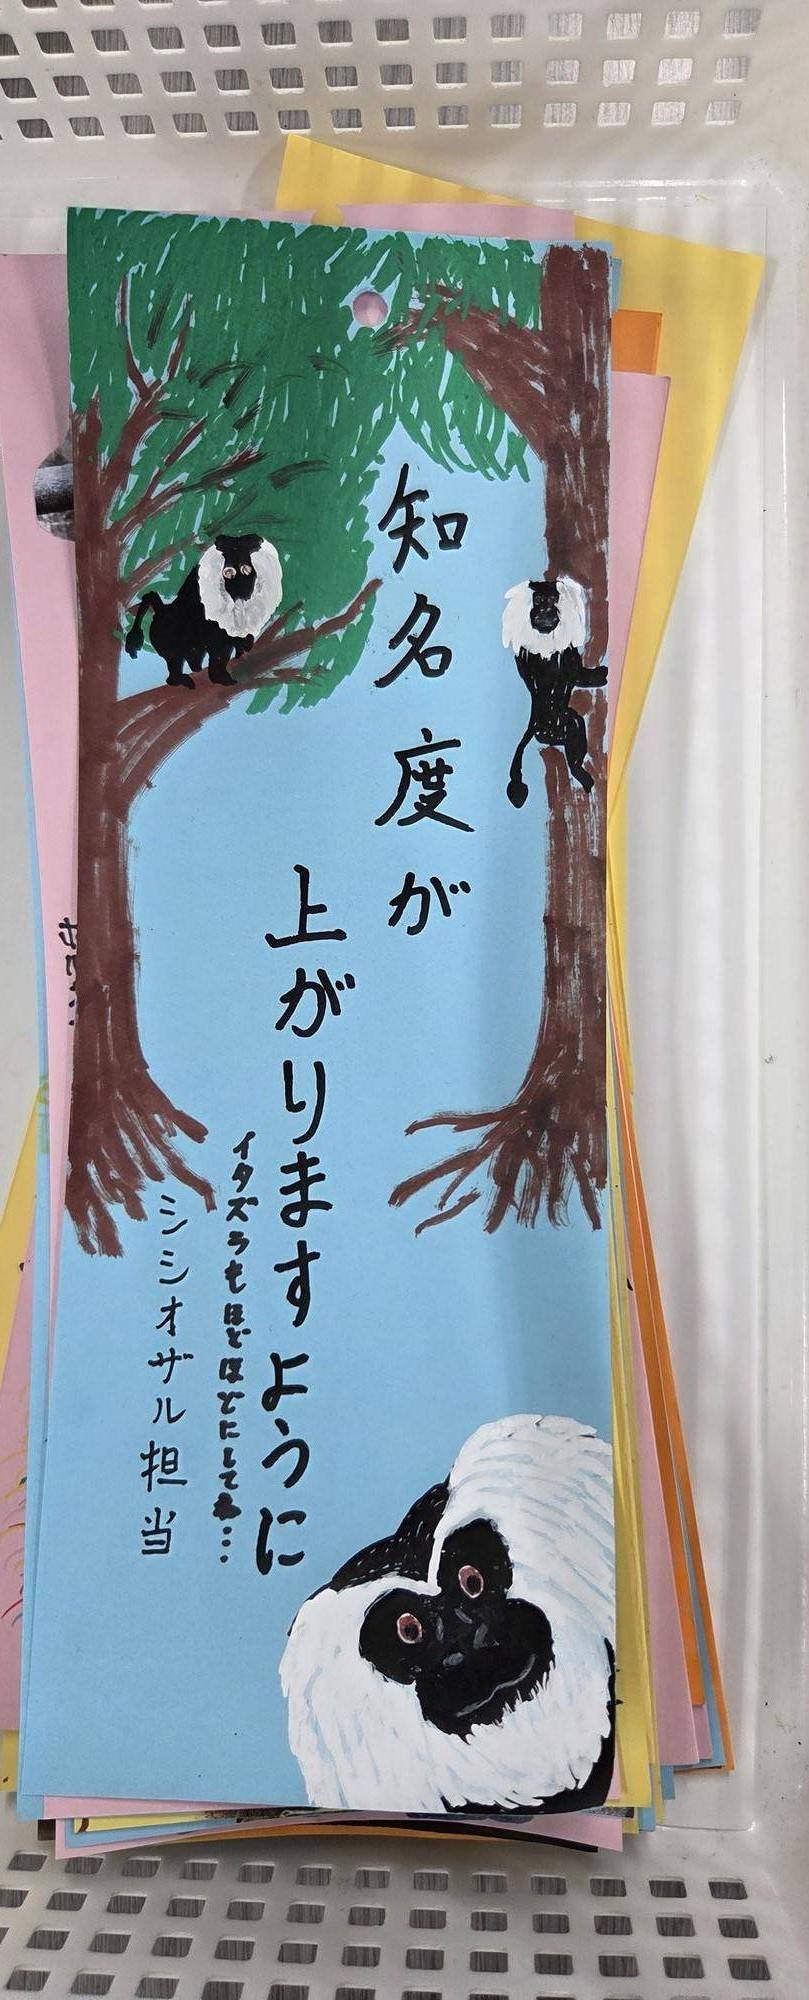 知名度が
上がりますように
イタズラもほどほどにしてね…
シシオザル担当